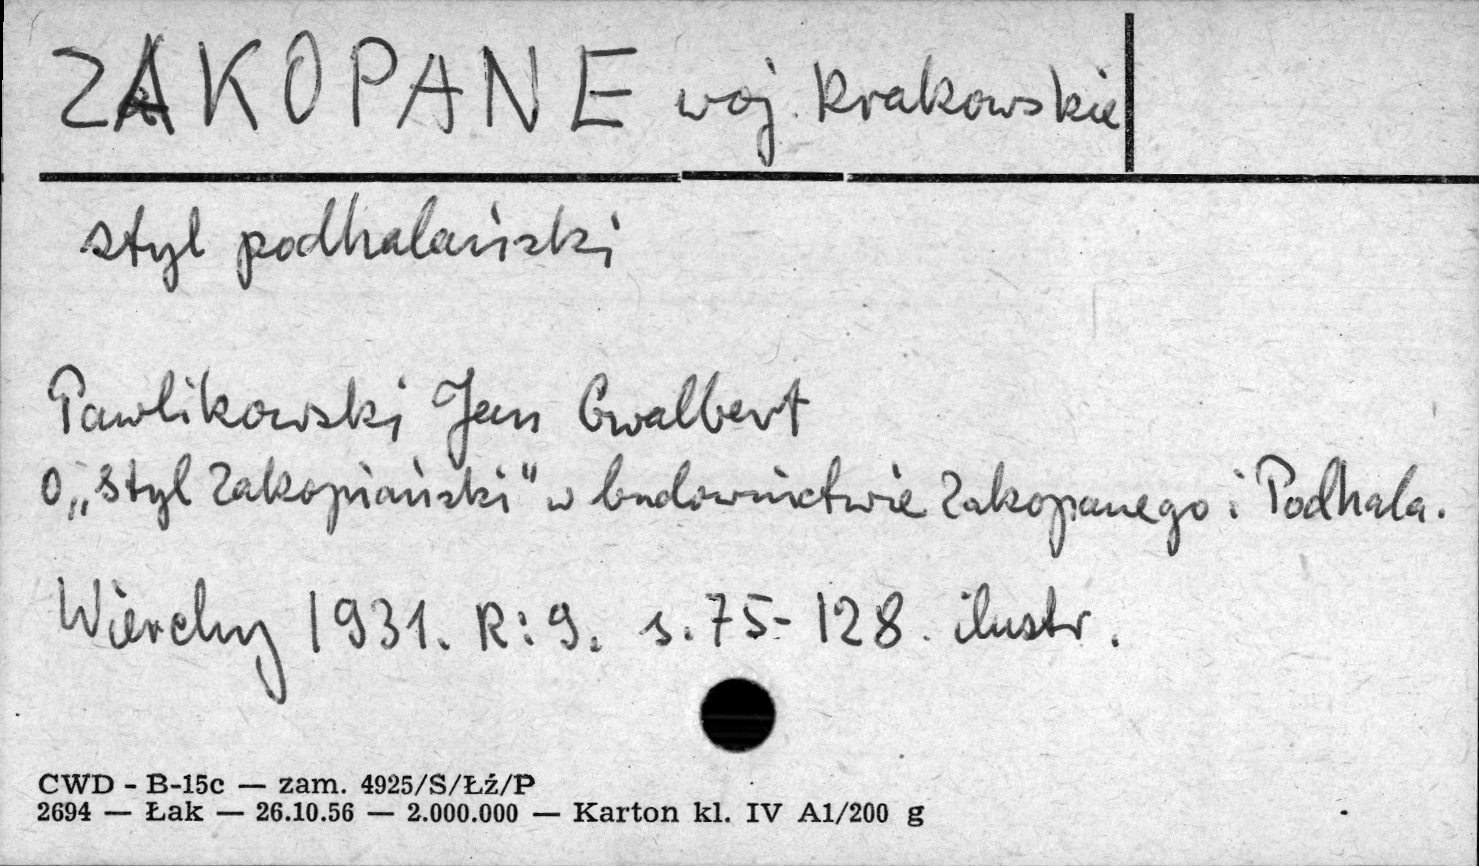 ZAKOPANE woj. Krakowskie
styl podhalański
Pawlikowski Jan Gwalbert
O „styl Zakopiański" w budownictwie Zakopanego i Podhala.
Wierchy 1931. R: 9. s. 75-128. ilustr.
CWD - B-15c — zam. 4925/S/Łź/P
2694 — Łak — 26.10.56 — 2.000.000 — Karton kl. IV A1/200 g